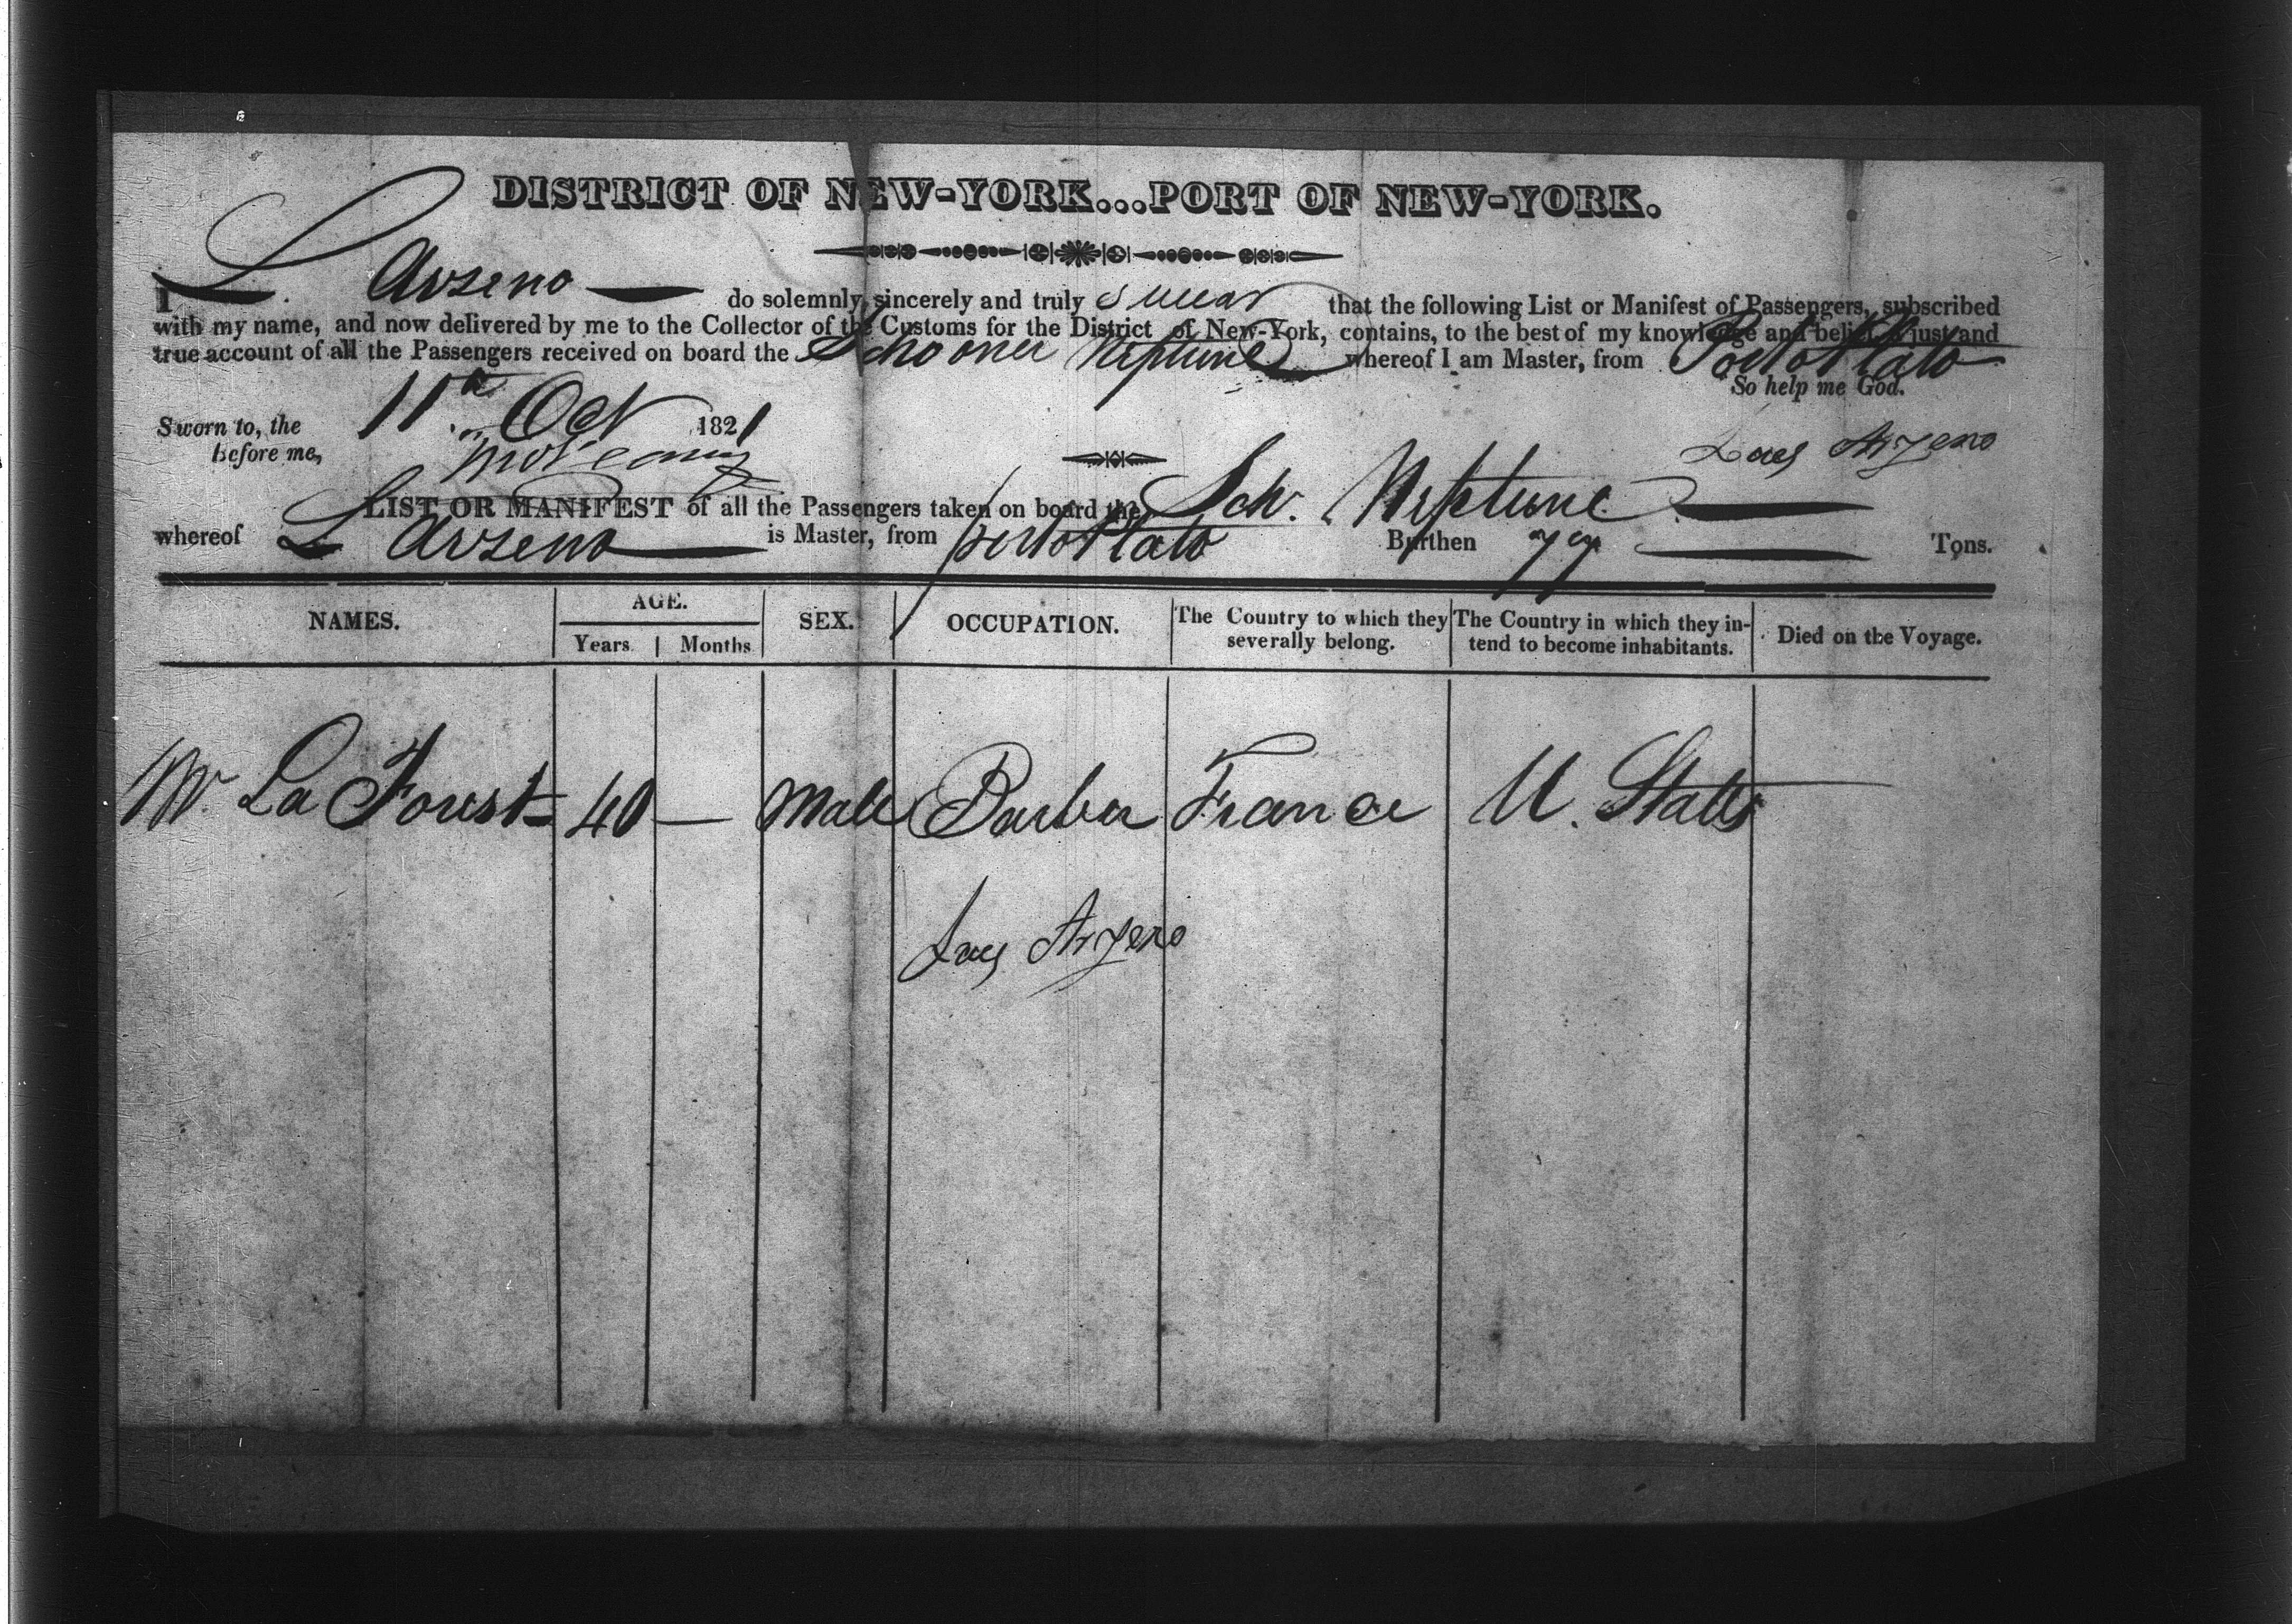 DISTRICT OF NEW-YORK...PORT OF NEW-YORK.
I L. Arseno do solemnly, sincerely and truly swear that the following List or Manifest of Passengers, subscribed
with my name, and now delivered by me to the Collector of the Customs for the District of New-York, contains, to the best of my knowledge and belief, a just and
true account of all the Passengers received on board the Schooner Neptune whereof I am Master, from Porto Plato
So help me God.
Sworn to, the 11th Oct 1821
before me,
Arzeno
LIST OR MANIFEST of all the Passengers taken on board the Schr. Neptune
whereof L Arseno is Master, from porto Plato Burthen 77 Tons.
NAMES. AGE. SEX. OCCUPATION. The Country to which they severally belong. The Country in which they intend to become inhabitants. Died on the Voyage.
Years. Months
Mr. La Forist 40 — Male Barber France U. States
Arzeno